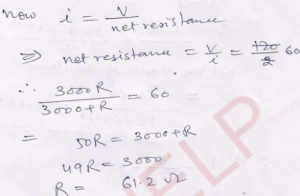 Now i = V / net resistance
⇒ net resistance = V/i = 120/2 60
∴ 3000R / 3000+R = 60
= 50R = 3000+R
49R = 3000
R = 61.2 Ω
HELP